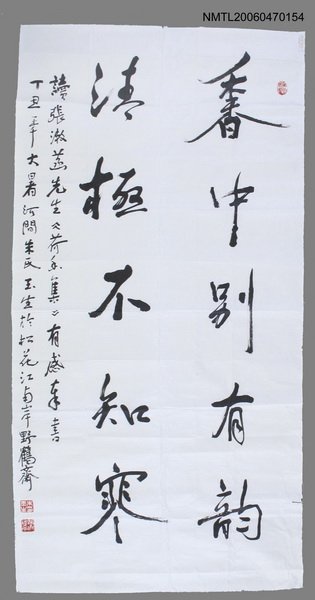 NMTL20060470154
香中別有韵
清極不知寒
讀張漱菡先生《荷香集》有感奉書
丁丑年大暑河間朱成玉生於松花江南岸野鶴齋